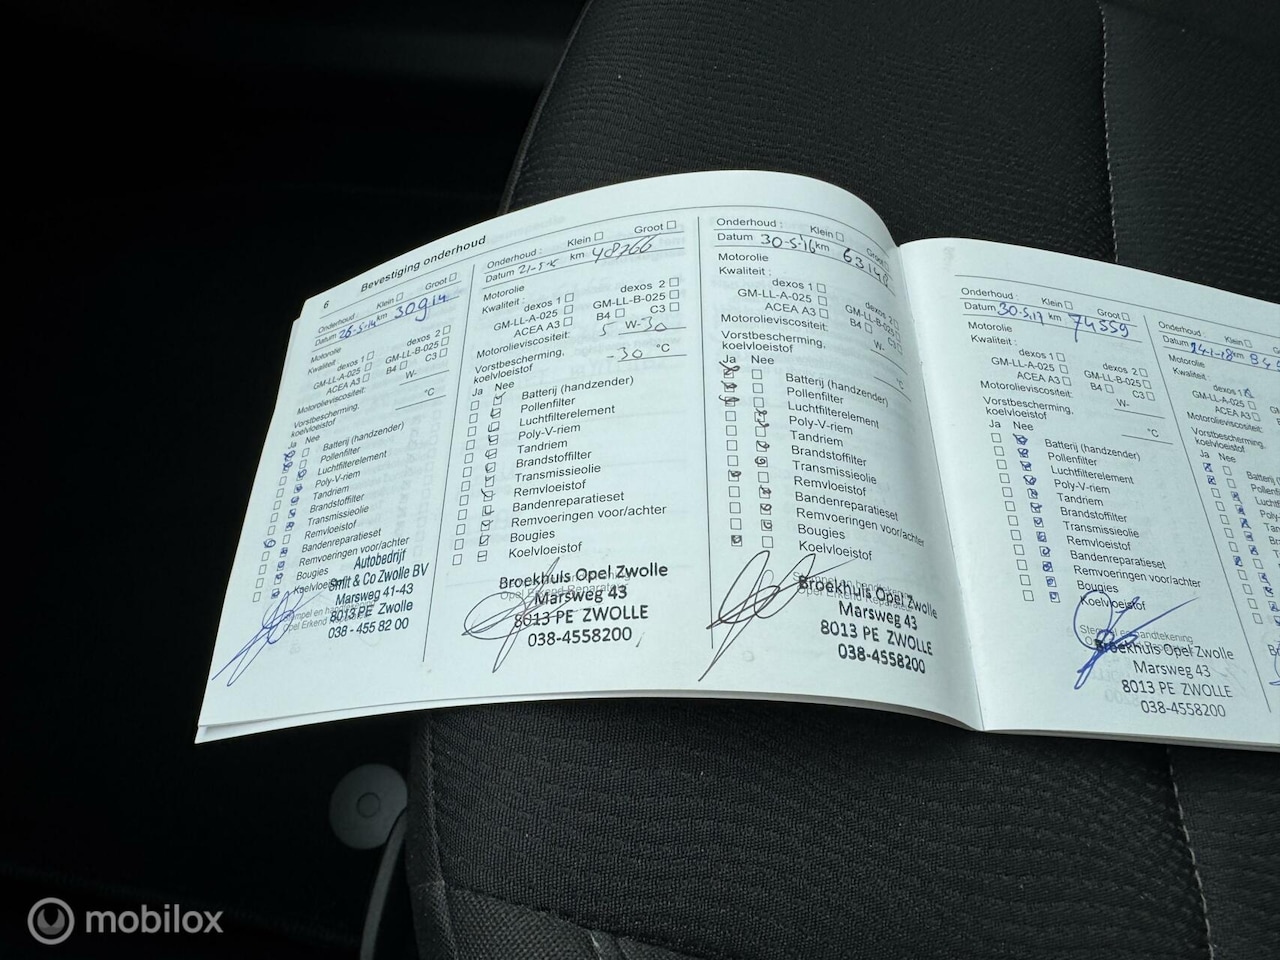 6 Bevestiging onderhoud
Onderhoud : Klein Groot
Datum 26-5-14 km 30914
Motorolie
Kwaliteit : dexos 1 dexos 2
GM-LL-A-025 GM-LL-B-025
ACEA A3 B4 C3
Motorolieviscositeit: W-
Vorstbescherming, °C
koelvloeistof
Ja Nee
Batterij (handzender)
Pollenfilter
Luchtfilterelement
Poly-V-riem
Tandriem
Brandstoffilter
Transmissieolie
Remvloeistof
Bandenreparatieset
Remvoeringen voor/achter
Bougies
Koelvloeistof
Autobedrijf
Smit & Co Zwolle BV
Marsweg 41-43
8013 PE Zwolle
038 - 455 82 00
Onderhoud : Klein Groot
Datum km 48766
Motorolie
Kwaliteit : dexos 1 dexos 2
GM-LL-A-025 GM-LL-B-025
ACEA A3 B4 C3
Motorolieviscositeit: 5 W-30
Vorstbescherming, -30 °C
koelvloeistof
Ja Nee
Batterij (handzender)
Pollenfilter
Luchtfilterelement
Poly-V-riem
Tandriem
Brandstoffilter
Transmissieolie
Remvloeistof
Bandenreparatieset
Remvoeringen voor/achter
Bougies
Koelvloeistof
Broekhuis Opel Zwolle
Marsweg 43
8013 PE ZWOLLE
038-4558200
Onderhoud : Klein Groot
Datum 30-5-'16 km 63148
Motorolie
Kwaliteit : dexos 1 dexos 2
GM-LL-A-025 GM-LL-B-025
ACEA A3 B4 C3
Motorolieviscositeit: W-
Vorstbescherming, °C
koelvloeistof
Ja Nee
Batterij (handzender)
Pollenfilter
Luchtfilterelement
Poly-V-riem
Tandriem
Brandstoffilter
Transmissieolie
Remvloeistof
Bandenreparatieset
Remvoeringen voor/achter
Bougies
Koelvloeistof
Stempel en handtekening
Broekhuis Opel Zwolle
Marsweg 43
8013 PE ZWOLLE
038-4558200
Onderhoud : Klein Groot
Datum 30-5-17 km 74559
Motorolie
dexos 1 dexos 2
GM-LL-A-025 GM-LL-B-025
ACEA A3 B4 C3
Motorolieviscositeit: W-
Vorstbescherming, °C
koelvloeistof
Ja Nee
Batterij (handzender)
Pollenfilter
Luchtfilterelement
Poly-V-riem
Tandriem
Brandstoffilter
Transmissieolie
Remvloeistof
Bandenreparatieset
Remvoeringen voor/achter
Bougies
Koelvloeistof
Broekhuis Opel Zwolle
Marsweg 43
8013 PE ZWOLLE
038-4558200
Onderhoud : Klein
Datum 24-1-18 km
Motorolie
Kwaliteit : dexos 1
GM-LL-A-025
ACEA A3
Motorolieviscositeit:
Vorstbescherming,
koelvloeistof
Ja Nee
mobilox